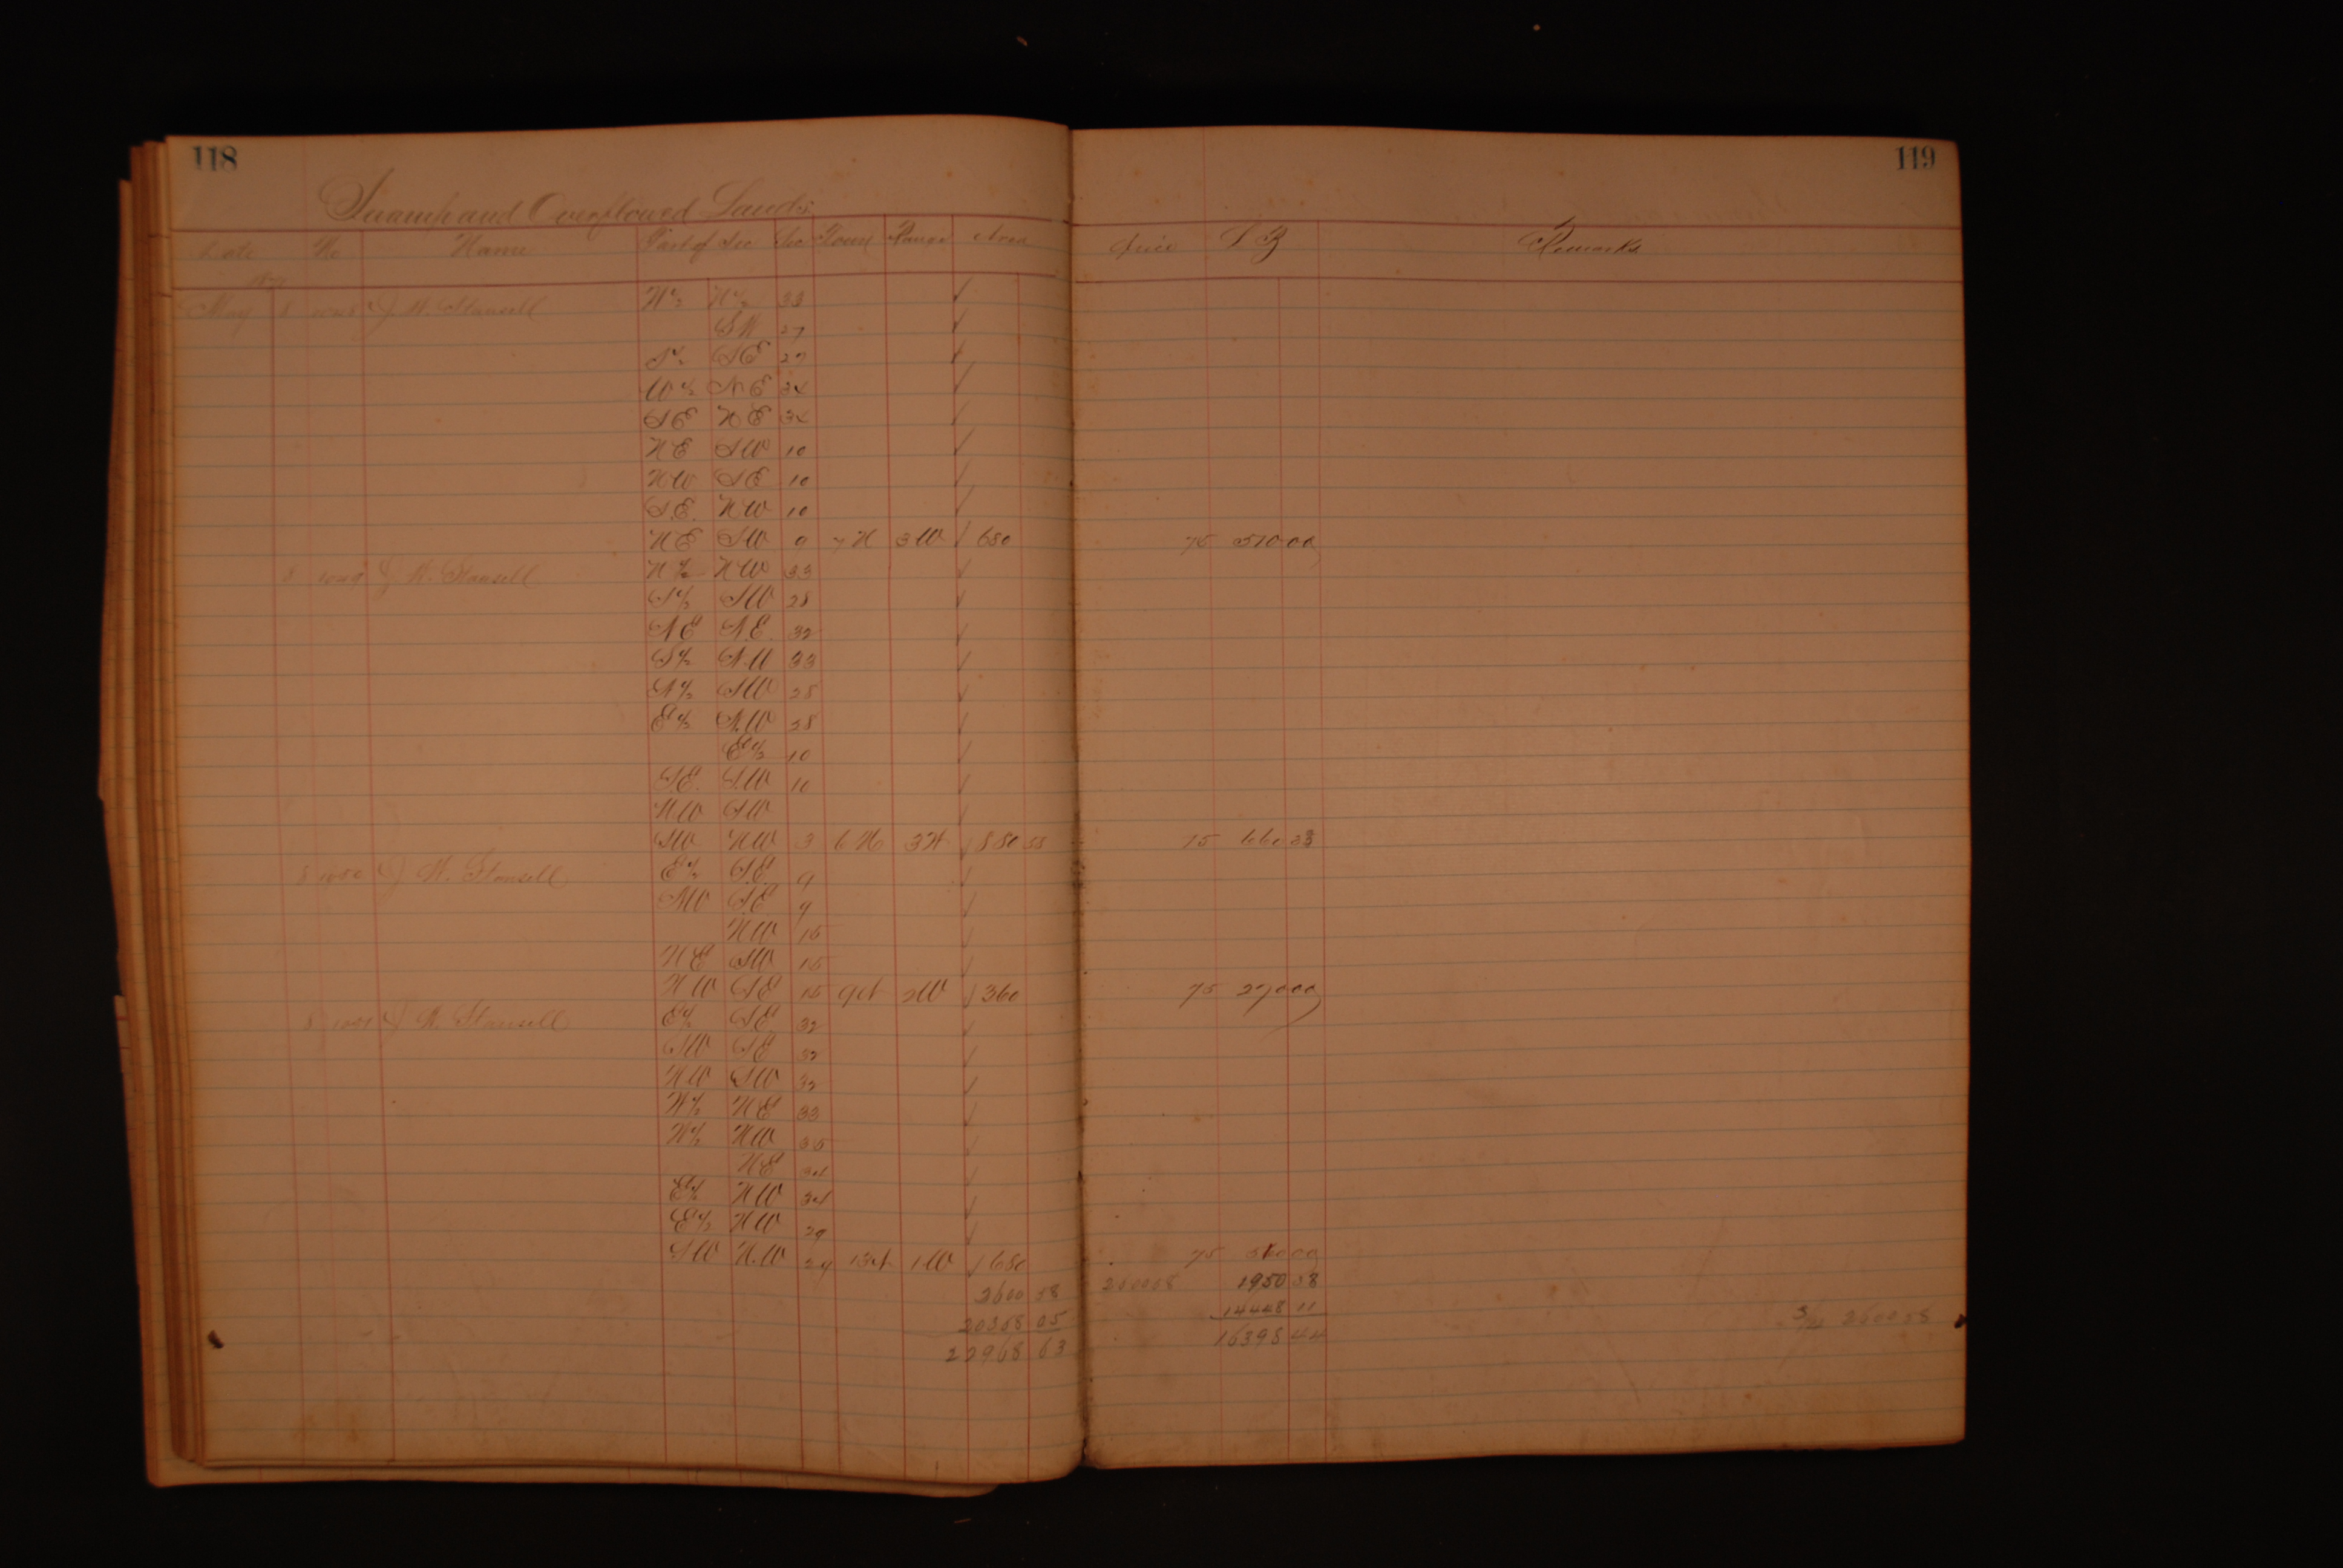 118
119
Swamp and Overflowed Lands
Date No Name Part of Sec Sec Town Range Area Price Remarks
May 8 J. H. Stansell N½ N½ 33 ✓
27 ✓
S½ SE 27 ✓
W½ NE 34 ✓
SE NE 34 ✓
NE SW 10 ✓
NW SE 10 ✓
S.E. NW 10 ✓
NE SW 9 7 N 3 W ✓ 680 75 510 00
8 1049 J. H. Stansell N½ NW 33 ✓
S½ SW 28 ✓
NE N.E. 32 ✓
S½ N.W 33 ✓
N½ SW 28 ✓
E½ N.W 28 ✓
E½ 10 ✓
S.E. S.W 10 ✓
NW SW ✓
SW NW 3 6 N ✓ 880 58 75 660 38
8 1050 J. H. Stansell E½ S.E 9 ✓
SW S.E 9 ✓
NW 15 ✓
NE SW 15 ✓
NW SE 15 2W ✓ 360 75 270 00
8 1051 J. H. Stansell E½ SE 32 ✓
SW SE 32 ✓
NW SW 32 ✓
N½ NE 33 ✓
N½ NW 35 ✓
NE 34 ✓
E½ NW 34 ✓
E½ NW 29 ✓
SW N.W 29 1W ✓ 680 75 510 00
2600 58 2600 58 1950 38
20368 05 14448 11 2600 58
22968 63 16398 44